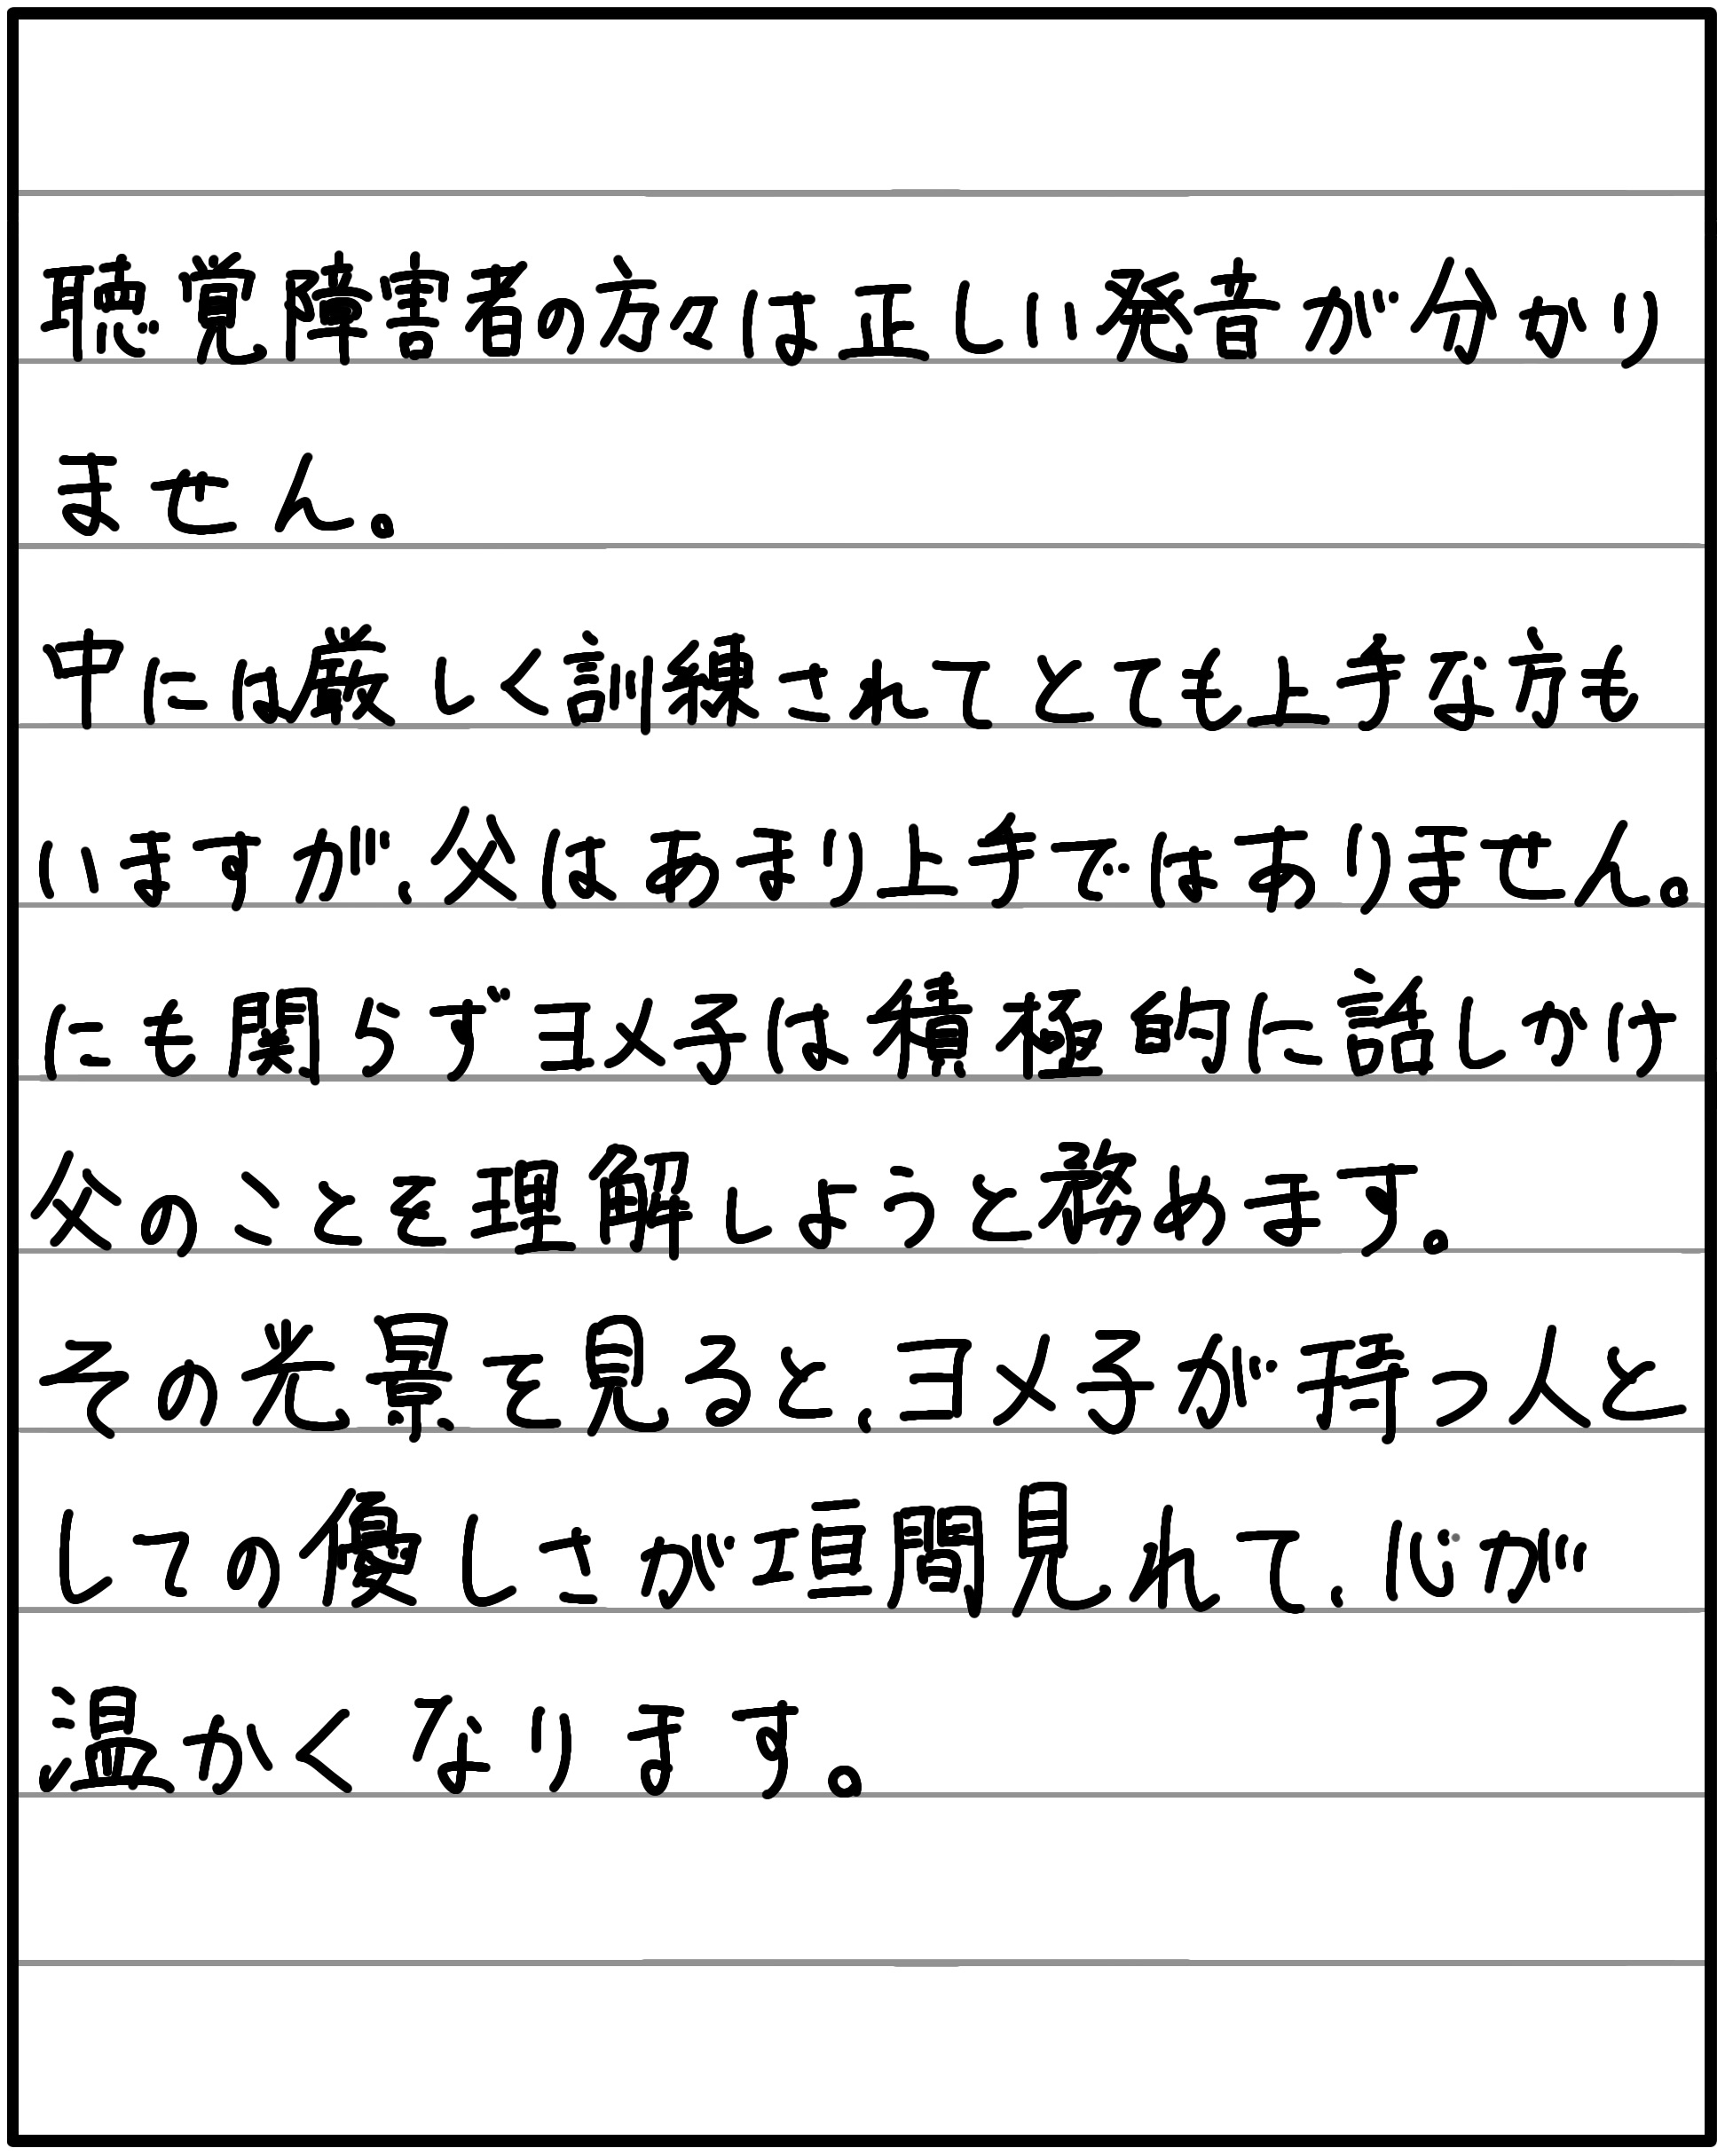 聴覚障害者の方々は正しい発音が分かり
ません。
中には厳しく訓練されてとても上手な方も
いますが、父はあまり上手ではありません。
にも関らずヨメ子は積極的に話しかけ
父のことを理解しようと務めます。
その光景を見ると、ヨメ子が持つ人と
しての優しさが垣間見れて、心が
温かくなります。